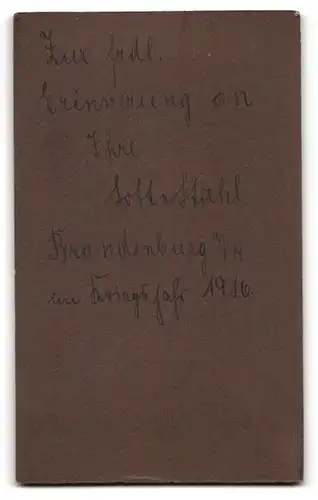 Zur frdl.
Erinnerung an
Ihre
Lotte Stahl
Brandenburg a/H
im Kriegsjahr 1916.